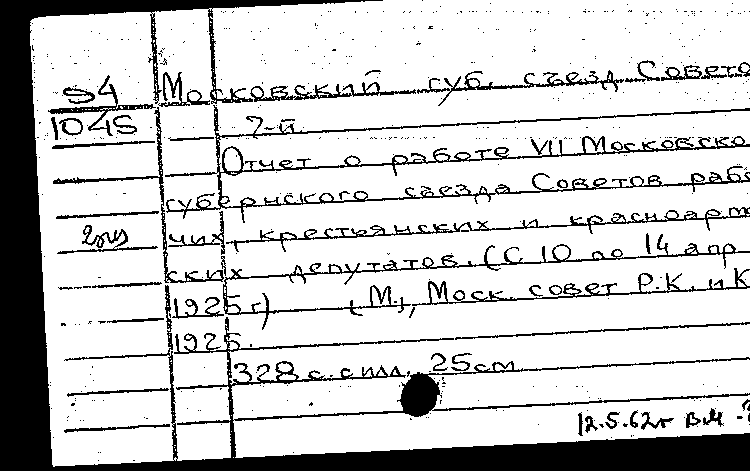 94 Московский губ. съезд Совето
1045 7-й
Отчет о работе VII Московско
губернского съезда Советов рабо
2 экз чих, крестьянских и красноарм
ских депутатов. (С 10 по 14 апр
1925 г). (М), Моск. совет Р.К. и К
1925.
328 с. с илл. 25см
12.5.62г